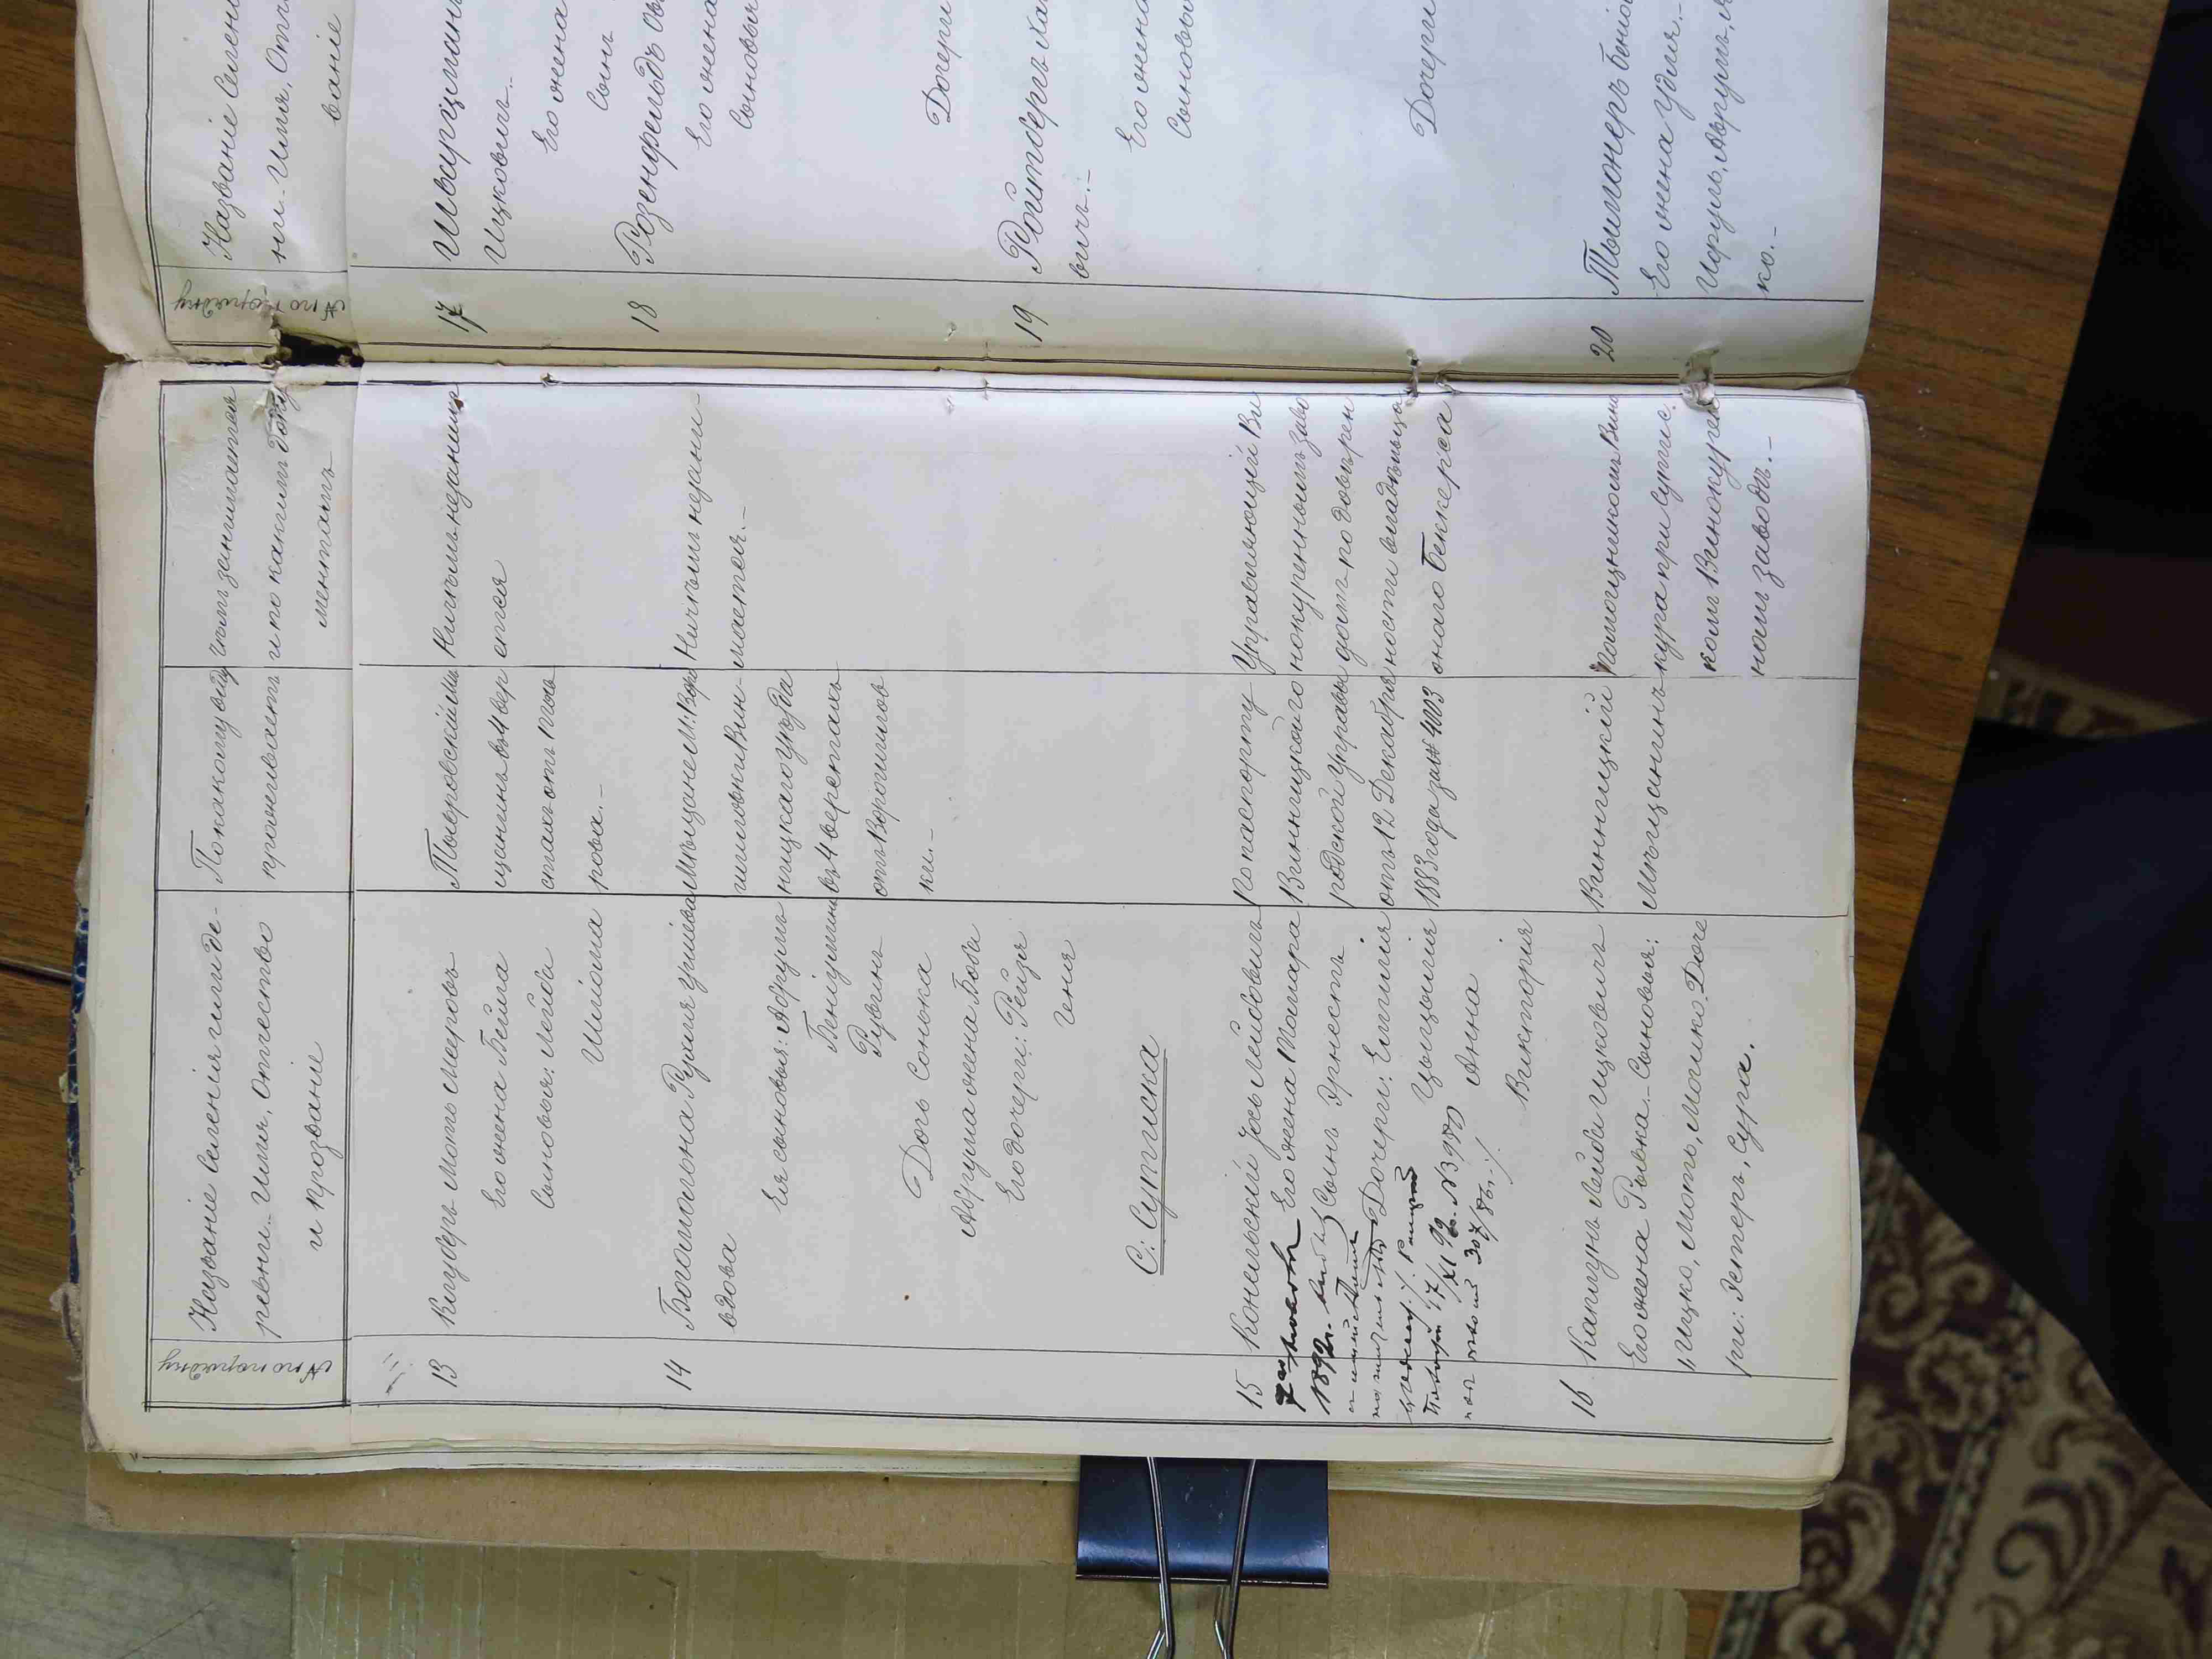 № по порядку
Названіе Селенія или де-
ревни. Имя, Отчество
и прозваніе
По какому виду
проживаетъ
чѣмъ занимается
и по какимъ доку
ментамъ
13
Мотъ Мееровъ
Его жена Бейла
Сыновья: Лейба
Шлёма
Тывровскій мѣ
щанинъ въ 4 вер
стахъ отъ Тыв
рова.-
Ничѣмъ незанима
ется
14
Богомольна Рухля
вдова
Ея сыновья: Абрумъ
Беніуминъ
Рувинъ
Дочь Сонька
Абрума жена Боба
Его дочери: Рейзя
Геня
Мѣщане м: Воро
шиловки Вин-
ницкаго уѣзда
въ 4 верстахъ
отъ Ворошилов
ки.-
Ничѣмъ незани-
мается.-
С: Сутиска
15
Конельскій Іось Лейбовичъ
Его жена Тамара
Сынъ Эрнестъ
Дочери: Емилія
Цыцылія
Анна
Викторія
1892г.
17/XI 92. № 3950
307/86.
По паспорту
Винницкой го
родской Управы
отъ 12 Декабря
1883 года за № 4003
Управляющій Ви
нокуреннымъ заво
домъ по довѣрен
ности владѣльца
онаго Беккерса
16
Капунъ Лейба Ицковичъ
Его жена Рывка.- Сыновья:
Ицко, Мотъ, Мошко. Доче
ри: Эстеръ, Сура.
Винницкій
мѣщанинъ
Помощникомъ Вино
кура при Сутис.
комъ Винокурен
номъ заводѣ.-
№ по порядку
Названіе Селен
ни. Имя, Отч
ваніе
17
Шварцманъ
Ицковичъ.-
Его жена
Сынъ
18
Розенфельдъ
Его жена
Сыновья
Дочери
19
Ройтбергъ Ха
вичъ.-
Его жена
Сыновья
Дочери
20
Его жена Удля.-
Исруль, Абрумъ,
ко.-